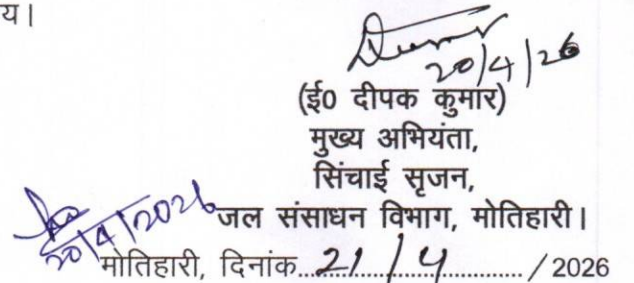 य।
20/4/26
(ई0 दीपक कुमार)
मुख्य अभियंता,
सिंचाई सृजन,
जल संसाधन विभाग, मोतिहारी।
20/4/2026
मोतिहारी, दिनांक...21/4.../2026